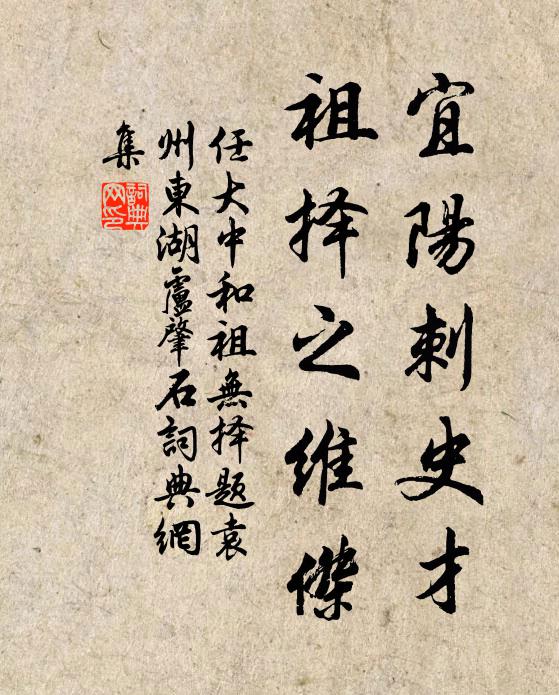 宜陽刺史才
祖择之維傑
任大中和祖無择题袁
州東湖盧肇石詞典網
集
詞典
网印